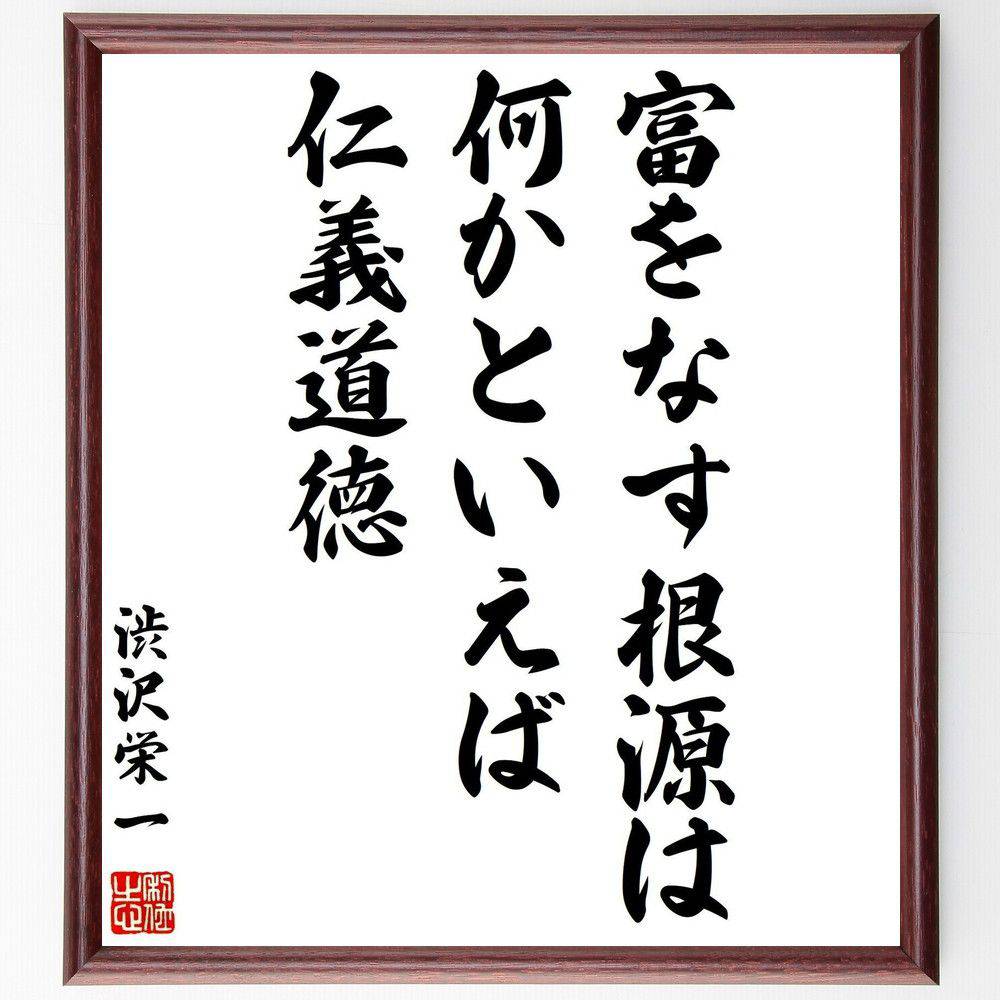 富をなす根源は
何かといえば
仁義道徳
渋沢栄一